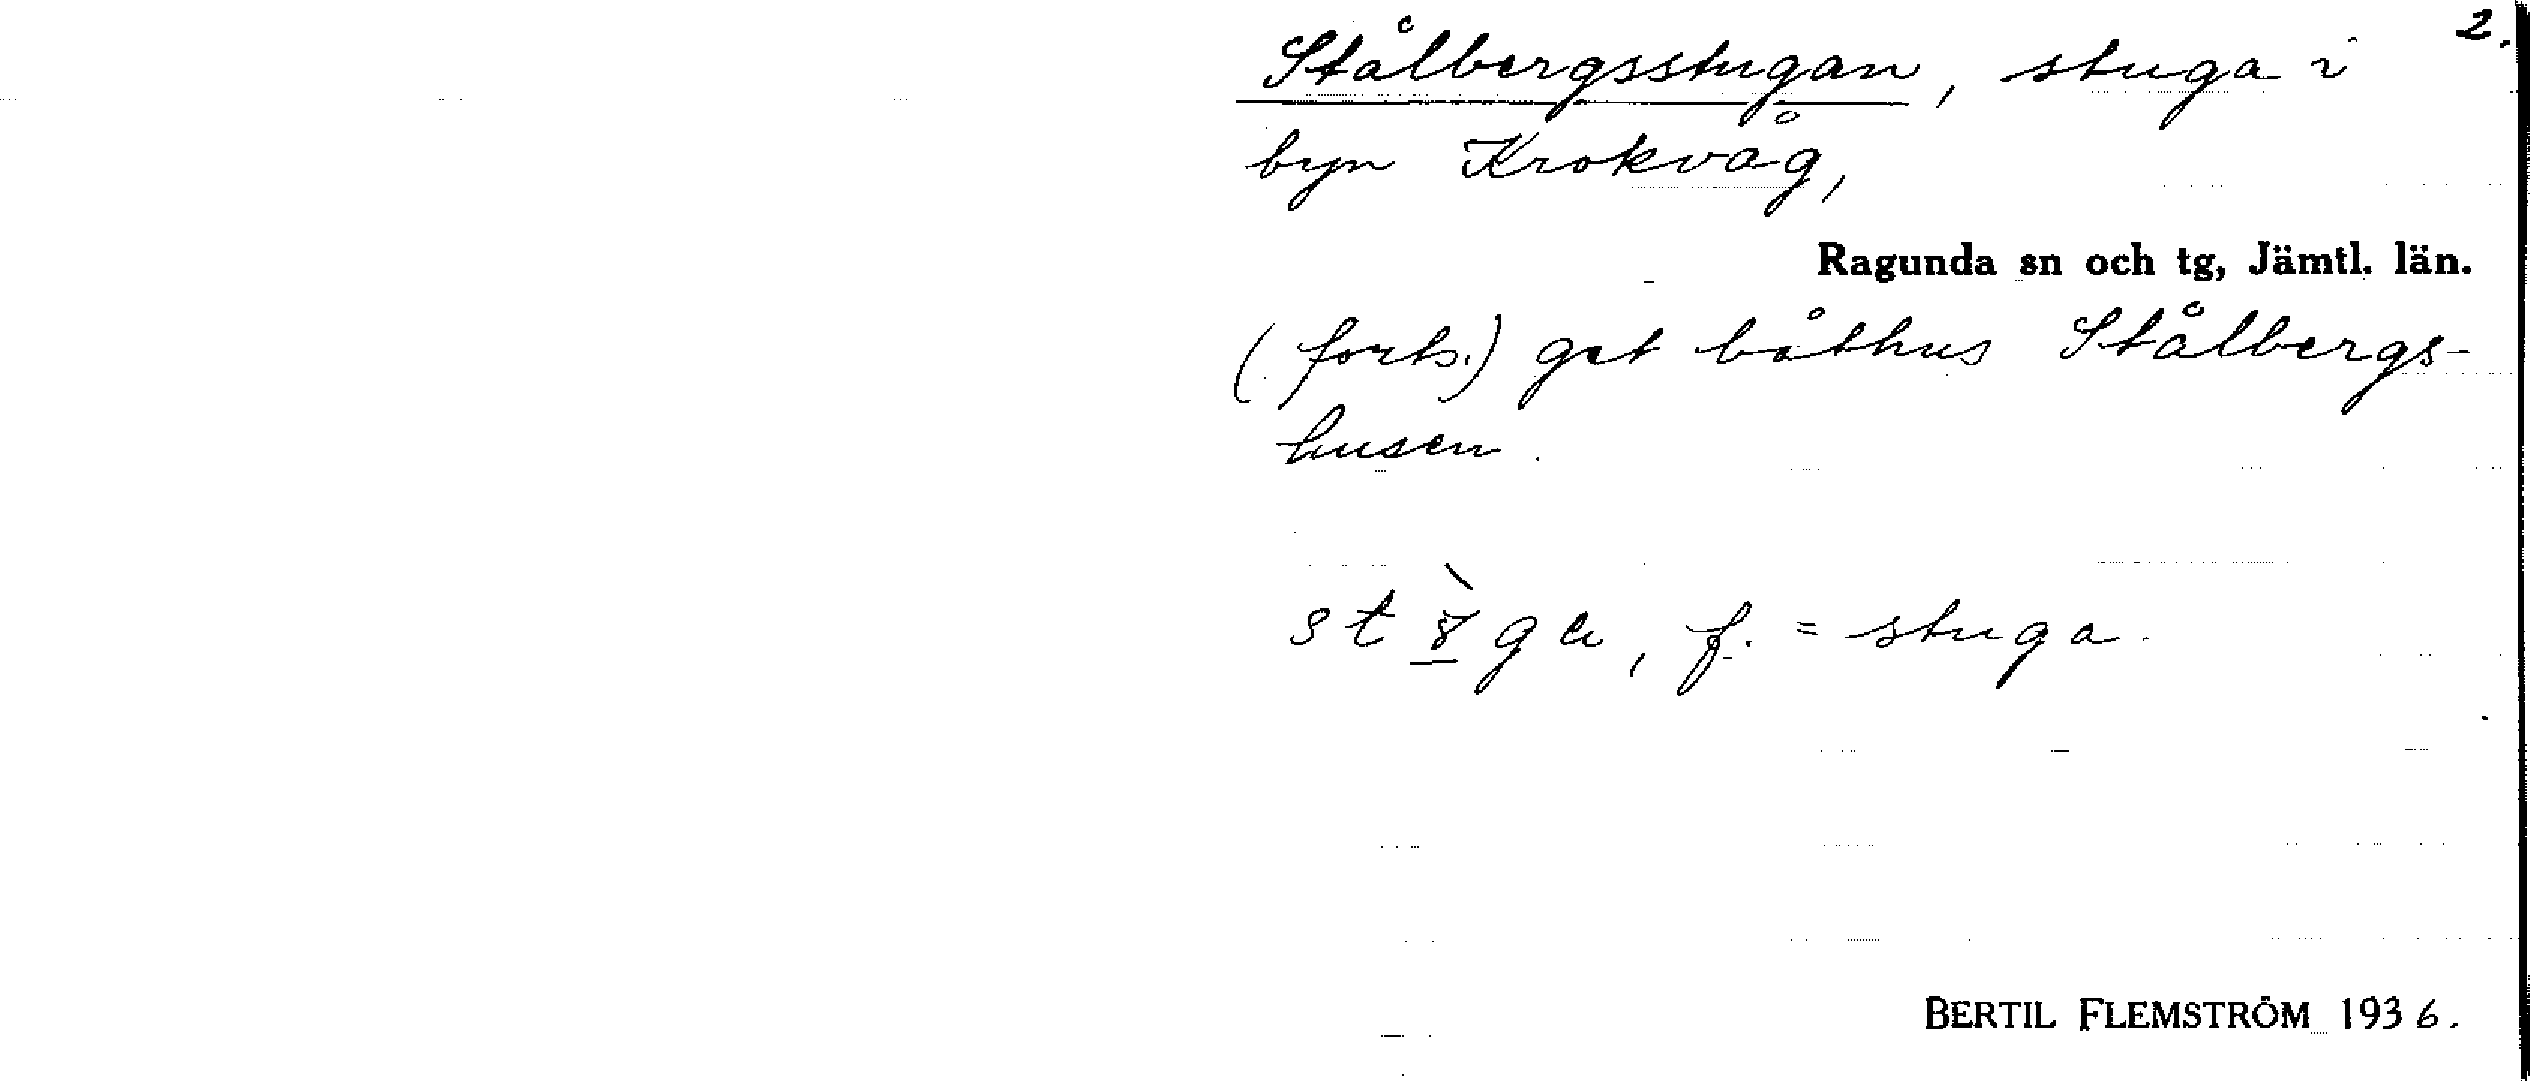 2.
Stålbergsstugan, stuga i
byn Krokvåg,
Ragunda sn och tg, Jämtl. län.
(forts.) get båthus Stålbergs-
husen.
f. = stuga.
BERTIL FLEMSTRÖM 1936.